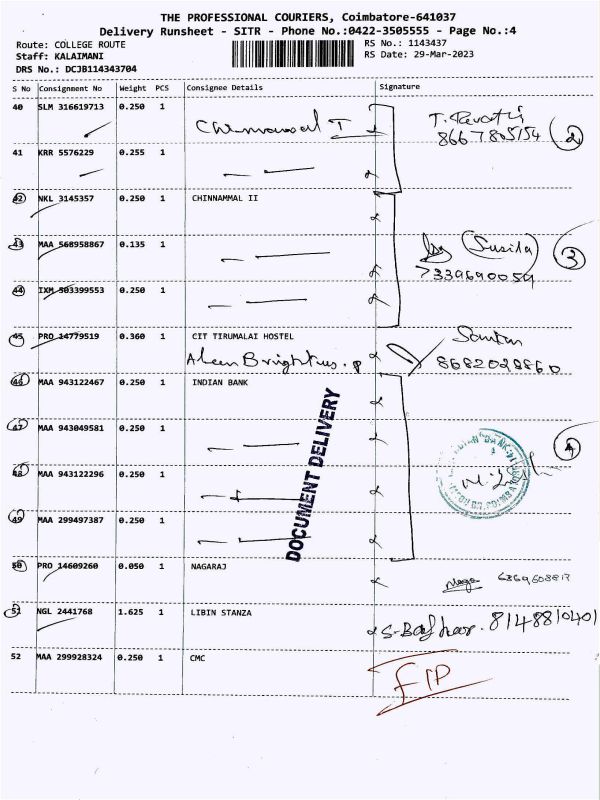 THE PROFESSIONAL COURIERS, Coimbatore-641037
Delivery Runsheet - SITR - Phone No.:0422-3505555 - Page No.:4
Route: COLLEGE ROUTE
Staff: KALAIMANI
DRS No.: DCJB114343704
RS No.: 1143437
RS Date: 29-Mar-2023
S No Consignment No Weight PCS Consignee Details Signature
40 SLM 316619713 0.250 1
Chinnammal I
8667805154 2
41 KRR 5576229 0.255 1
42 NKL 3145357 0.250 1 CHINNAMMAL II
43 MAA 568958867 0.135 1
(Susila) 3
7339690054
44 IXM 503399553 0.250 1
45 PRO 14779519 0.360 1 CIT TIRUMALAI HOSTEL
8682028860
46 MAA 943122467 0.250 1 INDIAN BANK
DOCUMENT DELIVERY
47 MAA 943049581 0.250 1
4
48 MAA 943122296 0.250 1
49 MAA 299497387 0.250 1
50 PRO 14609260 0.050 1 NAGARAJ
51 NGL 2441768 1.625 1 LIBIN STANZA
8148810401
52 MAA 299928324 0.250 1 CMC